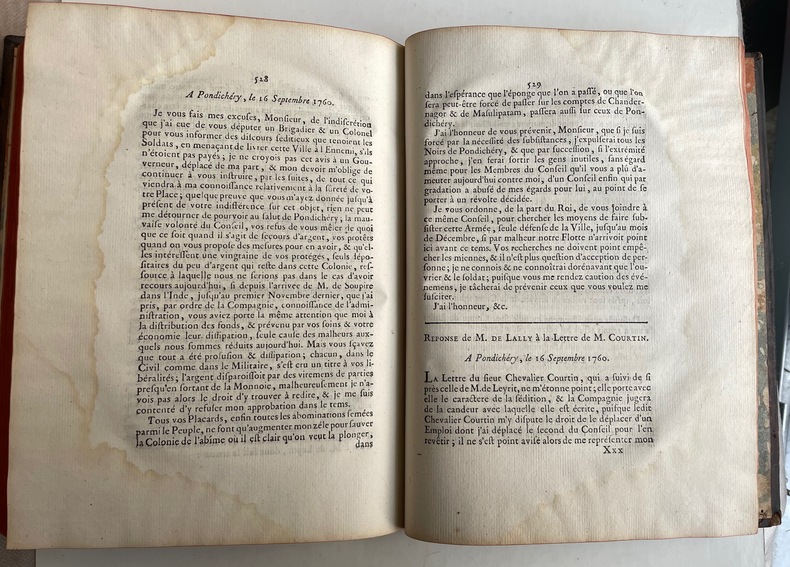 528
A Pondichéry, le 16 Septembre 1760.
Je vous fais mes excuses, Monsieur, de l'indiscrétion
que j'ai eue de vous députer un Brigadier & un Colonel
pour vous informer des discours séditieux que tenoient les
Soldats, en menaçant de livrer cette Ville à l'Ennemi, s'ils
n'étoient pas payés; je ne croyois pas cet avis à un Gou-
verneur, déplacé de ma part, & mon devoir m'oblige de
continuer à vous instruire, par les suites, de tout ce qui
viendra à ma connoissance relativement à la sûreté de vo-
tre Place; quelque preuve que vous m'ayez donnée jusqu'à
présent de votre indifférence sur cet objet, rien ne peut
me détourner de pourvoir au salut de Pondichéry; la mau-
vaise volonté du Conseil, vos refus de vous mêler de quoi
que ce soit quand il s'agit de secours d'argent, vos protêts
quand on vous propose des mesures pour en avoir, & qu'el-
les intéressent une vingtaine de vos protégés, seuls dépo-
sitaires du peu d'argent qui reste dans cette Colonie, ref-
source à laquelle nous ne serions pas dans le cas d'avoir
recours aujourd'hui, si depuis l'arrivée de M. de Soupire
dans l'Inde, jusqu'au premier Novembre dernier, que j'ai
pris, par ordre de la Compagnie, connoissance de l'admi-
nistration, vous aviez porté la même attention que moi à
la distribution des fonds, & prévenu par vos soins & votre
économie leur dissipation, seule cause des malheurs aux-
quels nous sommes réduits aujourd'hui. Mais vous sçavez
que tout a été profusion & dissipation; chacun, dans le
Civil comme dans le Militaire, s'est cru un titre à vos li-
béralités; l'argent disparoissoit par des viremens de parties
presqu'en sortant de la Monnoie, malheureusement je n'a-
vois pas alors le droit d'y trouver à redire, & je me suis
contenté d'y refuser mon approbation dans le tems.
Tous vos Placards, enfin toutes les abominations semées
parmi le Peuple, ne font qu'augmenter mon zéle pour sauver
la Colonie de l'abîme où il est clair qu'on veut la plonger,
dans
529
dans l'espérance que l'éponge que l'on a passé, ou que l'on
sera peut-être forcé de passer sur les comptes de Chander-
nagor & de Masulipatam, passera aussi sur ceux de Pon-
dichéry.
J'ai l'honneur de vous prévenir, Monsieur, que si je suis
forcé par la nécessité des subsistances, j'expulserai tous les
Noirs de Pondichéry, & que par succession, si l'extrémité
approche, j'en ferai sortir les gens inutiles, sans égard
même pour les Membres du Conseil qu'il vous a plû d'a-
meuter aujourd'hui contre moi, d'un Conseil enfin qui par
gradation a abusé de mes égards pour lui, au point de se
porter à un révolte décidée.
Je vous ordonne, de la part du Roi, de vous joindre à
ce même Conseil, pour chercher les moyens de faire sub-
sister cette Armée, seule défense de la Ville, jusqu'au mois
de Décembre, si par malheur notre Flotte n'arrivoit point
ici avant ce tems. Vos recherches ne doivent point empê-
cher les miennes, & il n'est plus question d'acception de per-
sonne; je ne connois & ne connoîtrai dorénavant que l'ou-
vrier & le soldat; puisque vous me rendez caution des évé-
nemens, je tâcherai de prévenir ceux que vous voulez me
susciter.
J'ai l'honneur, &c.
REPONSE de M. DE LALLY à la Lettre de M. COURTIN.
A Pondichéry, le 16 Septembre 1760.
LA Lettre du sieur Chevalier Courtin, qui a suivi de si
près celle de M. de Leyrit, ne m'étonne point; elle porte avec
elle le caractere de la sédition, & la Compagnie jugera
de la candeur avec laquelle elle est écrite, puisque ledit
Chevalier Courtin m'y dispute le droit de le déplacer d'un
Emploi dont j'ai déplacé le second du Conseil pour l'en
revêtir; il ne s'est point avisé alors de me représenter mon
Xxx